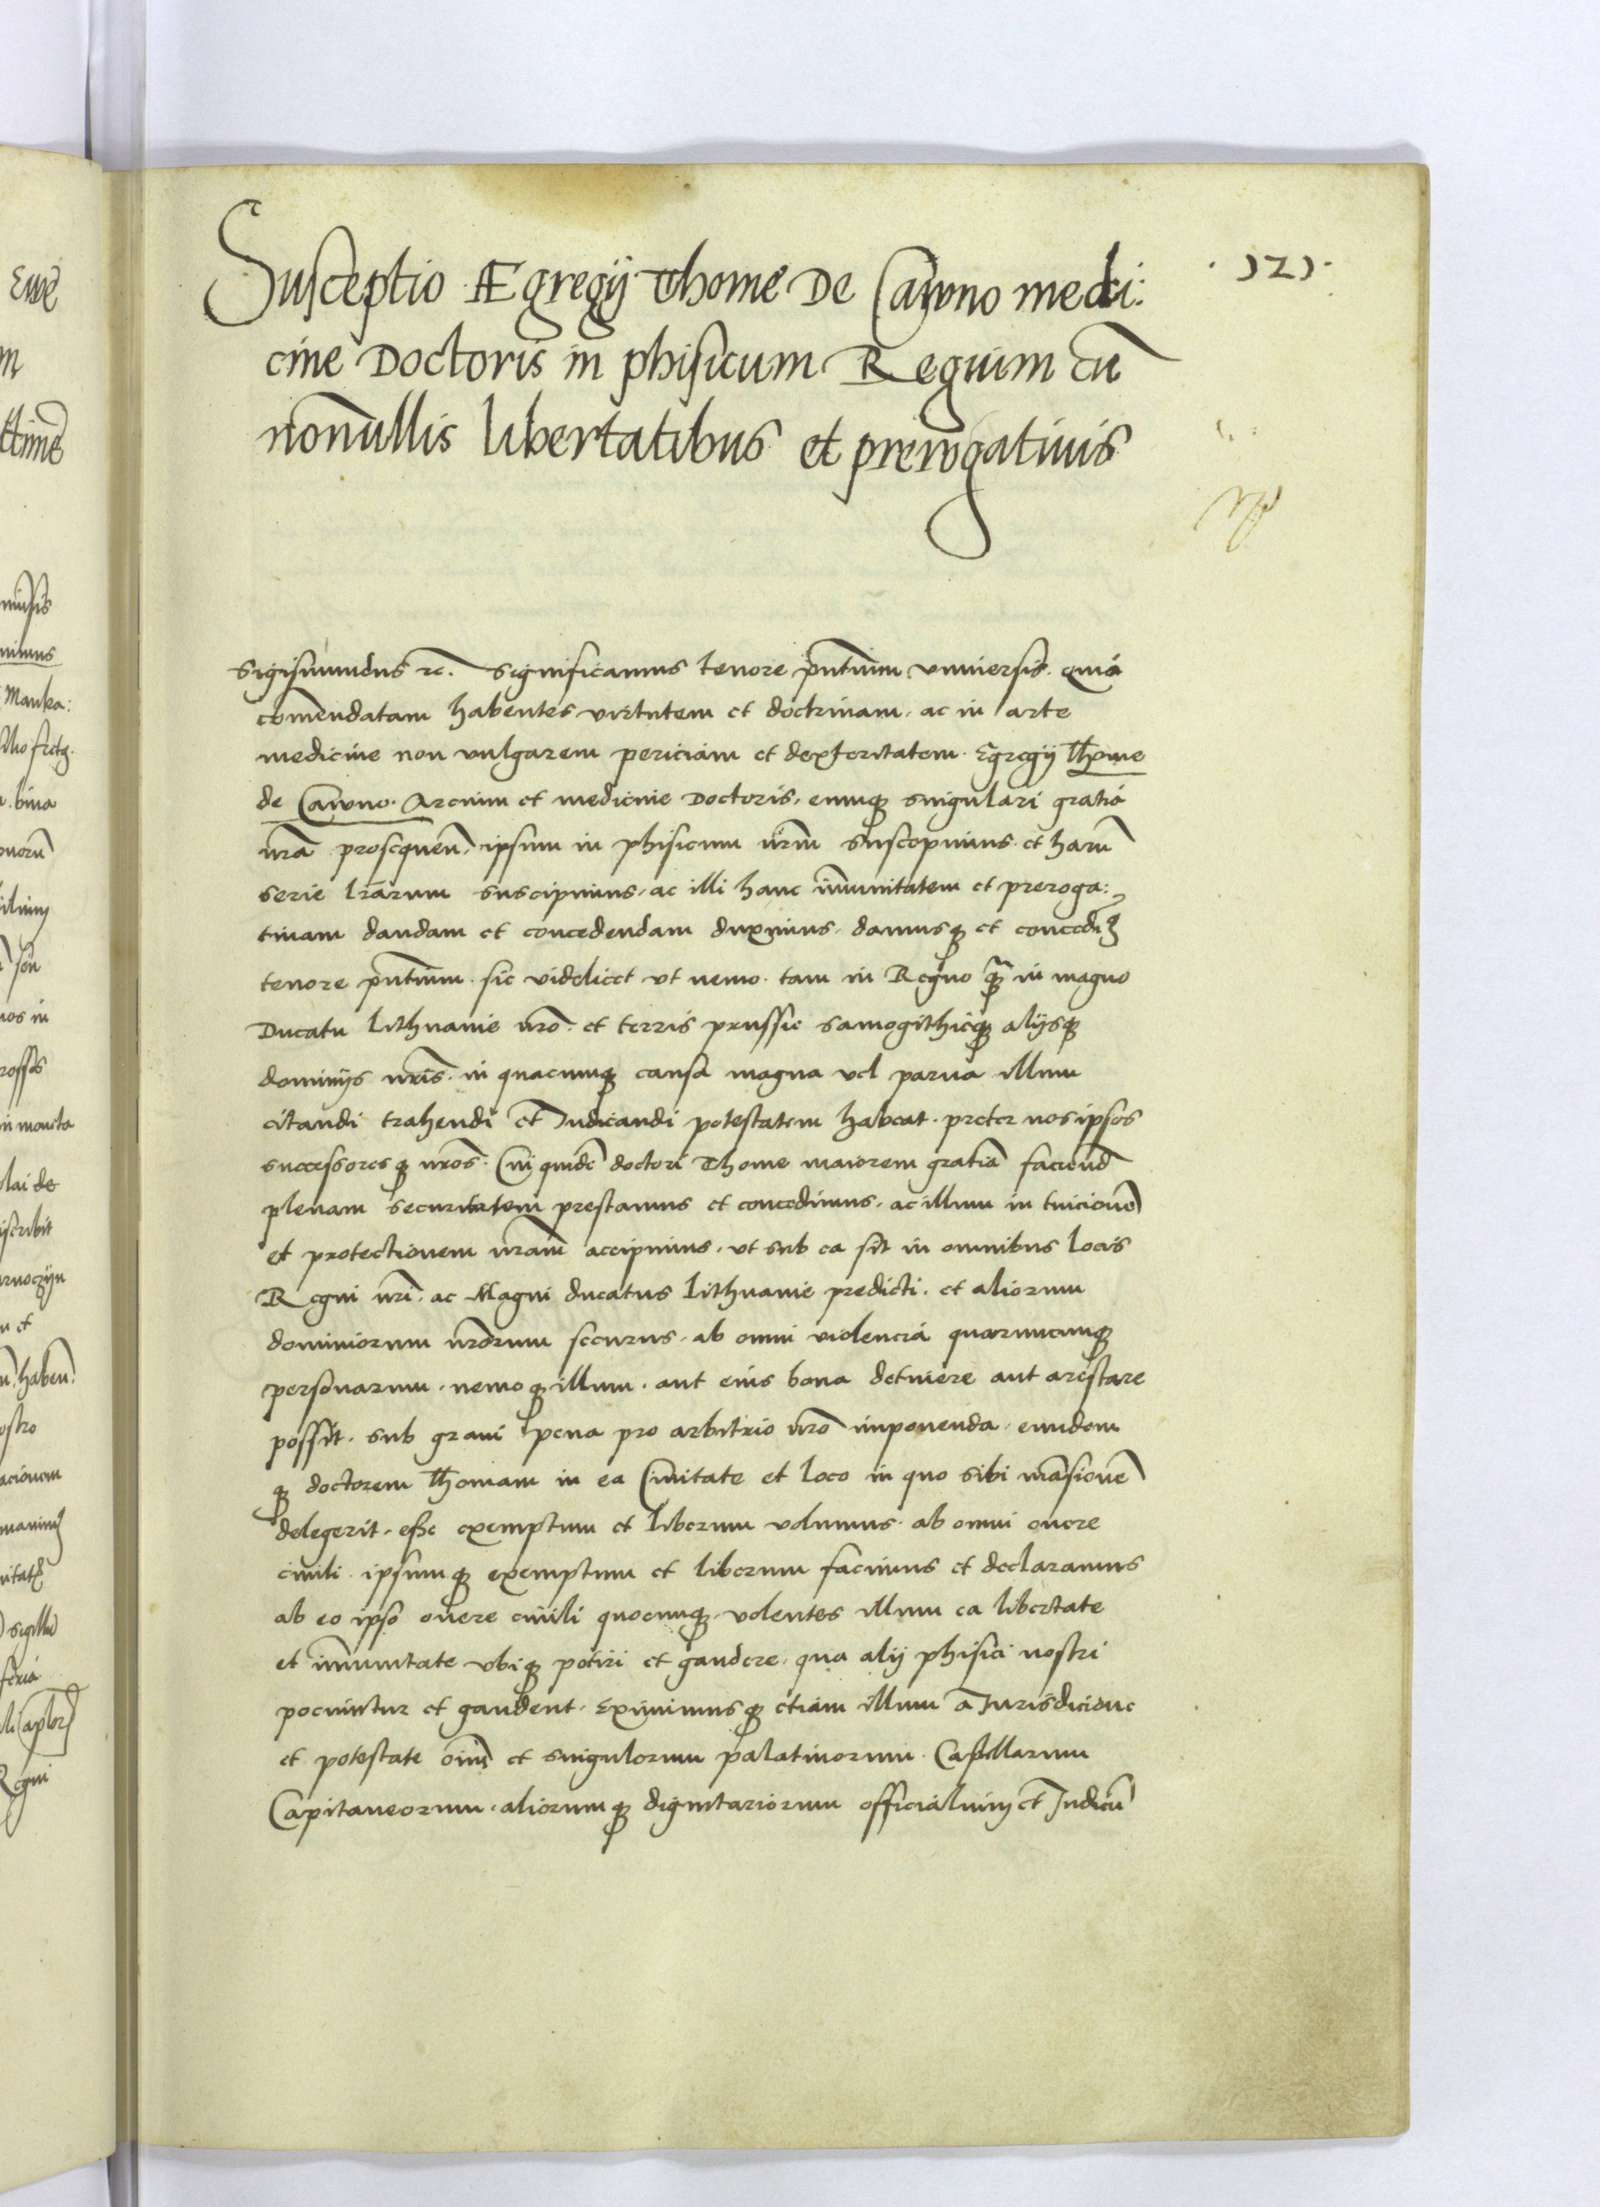 .121.
Susceptio Ægregij Thome De Cawno medi:
cine Doctoris in phisicum Regium cū
nonnullis libertatibus et prerogatiuis
Sigismundus rc. Significamus tenore pñtium vniuersis. quia
comendatam habentes virtutem et doctrinam, ac in arte
medicine non vulgarem periciam et dexteritatem. Egregij Thome
de Cawno. Arcium et medicine Doctoris, eumq singulari gratia
nr̃a prosequeñ. ipsum in phisicum nr̃m suscepimus. et harũ
serie l̃rarum suscipimus, ac illi hanc im̃unitatem et preroga:
tiuam dandam et concedendam duximus. damusq et concedim9
tenore pñtium. sic videlicet vt nemo. tam in Regno q̃ in magno
Ducatu Lithuanie nr̃o. et terris prussie samogithieq alijsq
dominijs nr̃is. in quacumq causa magna vel parua illum
citandi trahendi et Iudicandi potestatem habeat. preter nos ipsos
successores q nr̃os. Cui quidẽ doctori Thome maiorem gratiã facieñd
plenam securitatem prestamus et concedimus. ac illum in tuicionẽ
et protectionem nr̃am accipimus. vt sub ea sit in omnibus locis
Regni nr̃i. ac Magni ducatus Lithuanie predicti. et aliorum
dominiorum nr̃orum securus. ab omni violencia quarumcumq
personarum. nemoq illum. aut eius bona detinere aut arestare
possit. sub graui pena pro arbitrio nr̃o imponenda. eundem
q doctorem Thomam in ea Ciuitate et loco in quo sibi mãsionẽ
delegerit. esse exemptum et liberum volumus. ab omni onere
ciuili. ipsumq exemptum et liberum facimus et declaramus
ab eo ipso onere ciuili quocumq. volentes illum ea libertate
et im̃unitate vbiq potiri et gaudere. qua alij phisici nostri
pociuntur et gaudent. Eximimusq etiam illum a Iurisdicione
et potestate oĩm et singulorum palatinorum. Castellanorum
Capitaneorum. aliorumq dignitariorum officialium et Iudicũ